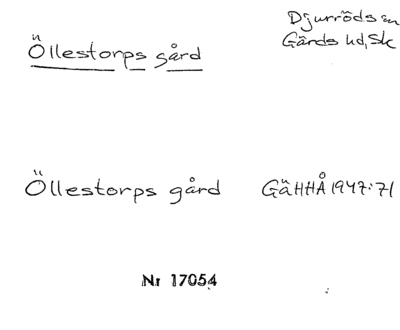 Djurröds sn
Öllestorps gård
Gärds hd, Sk
Öllestorps gård GäHHÅ 1947:71
Nr 17054